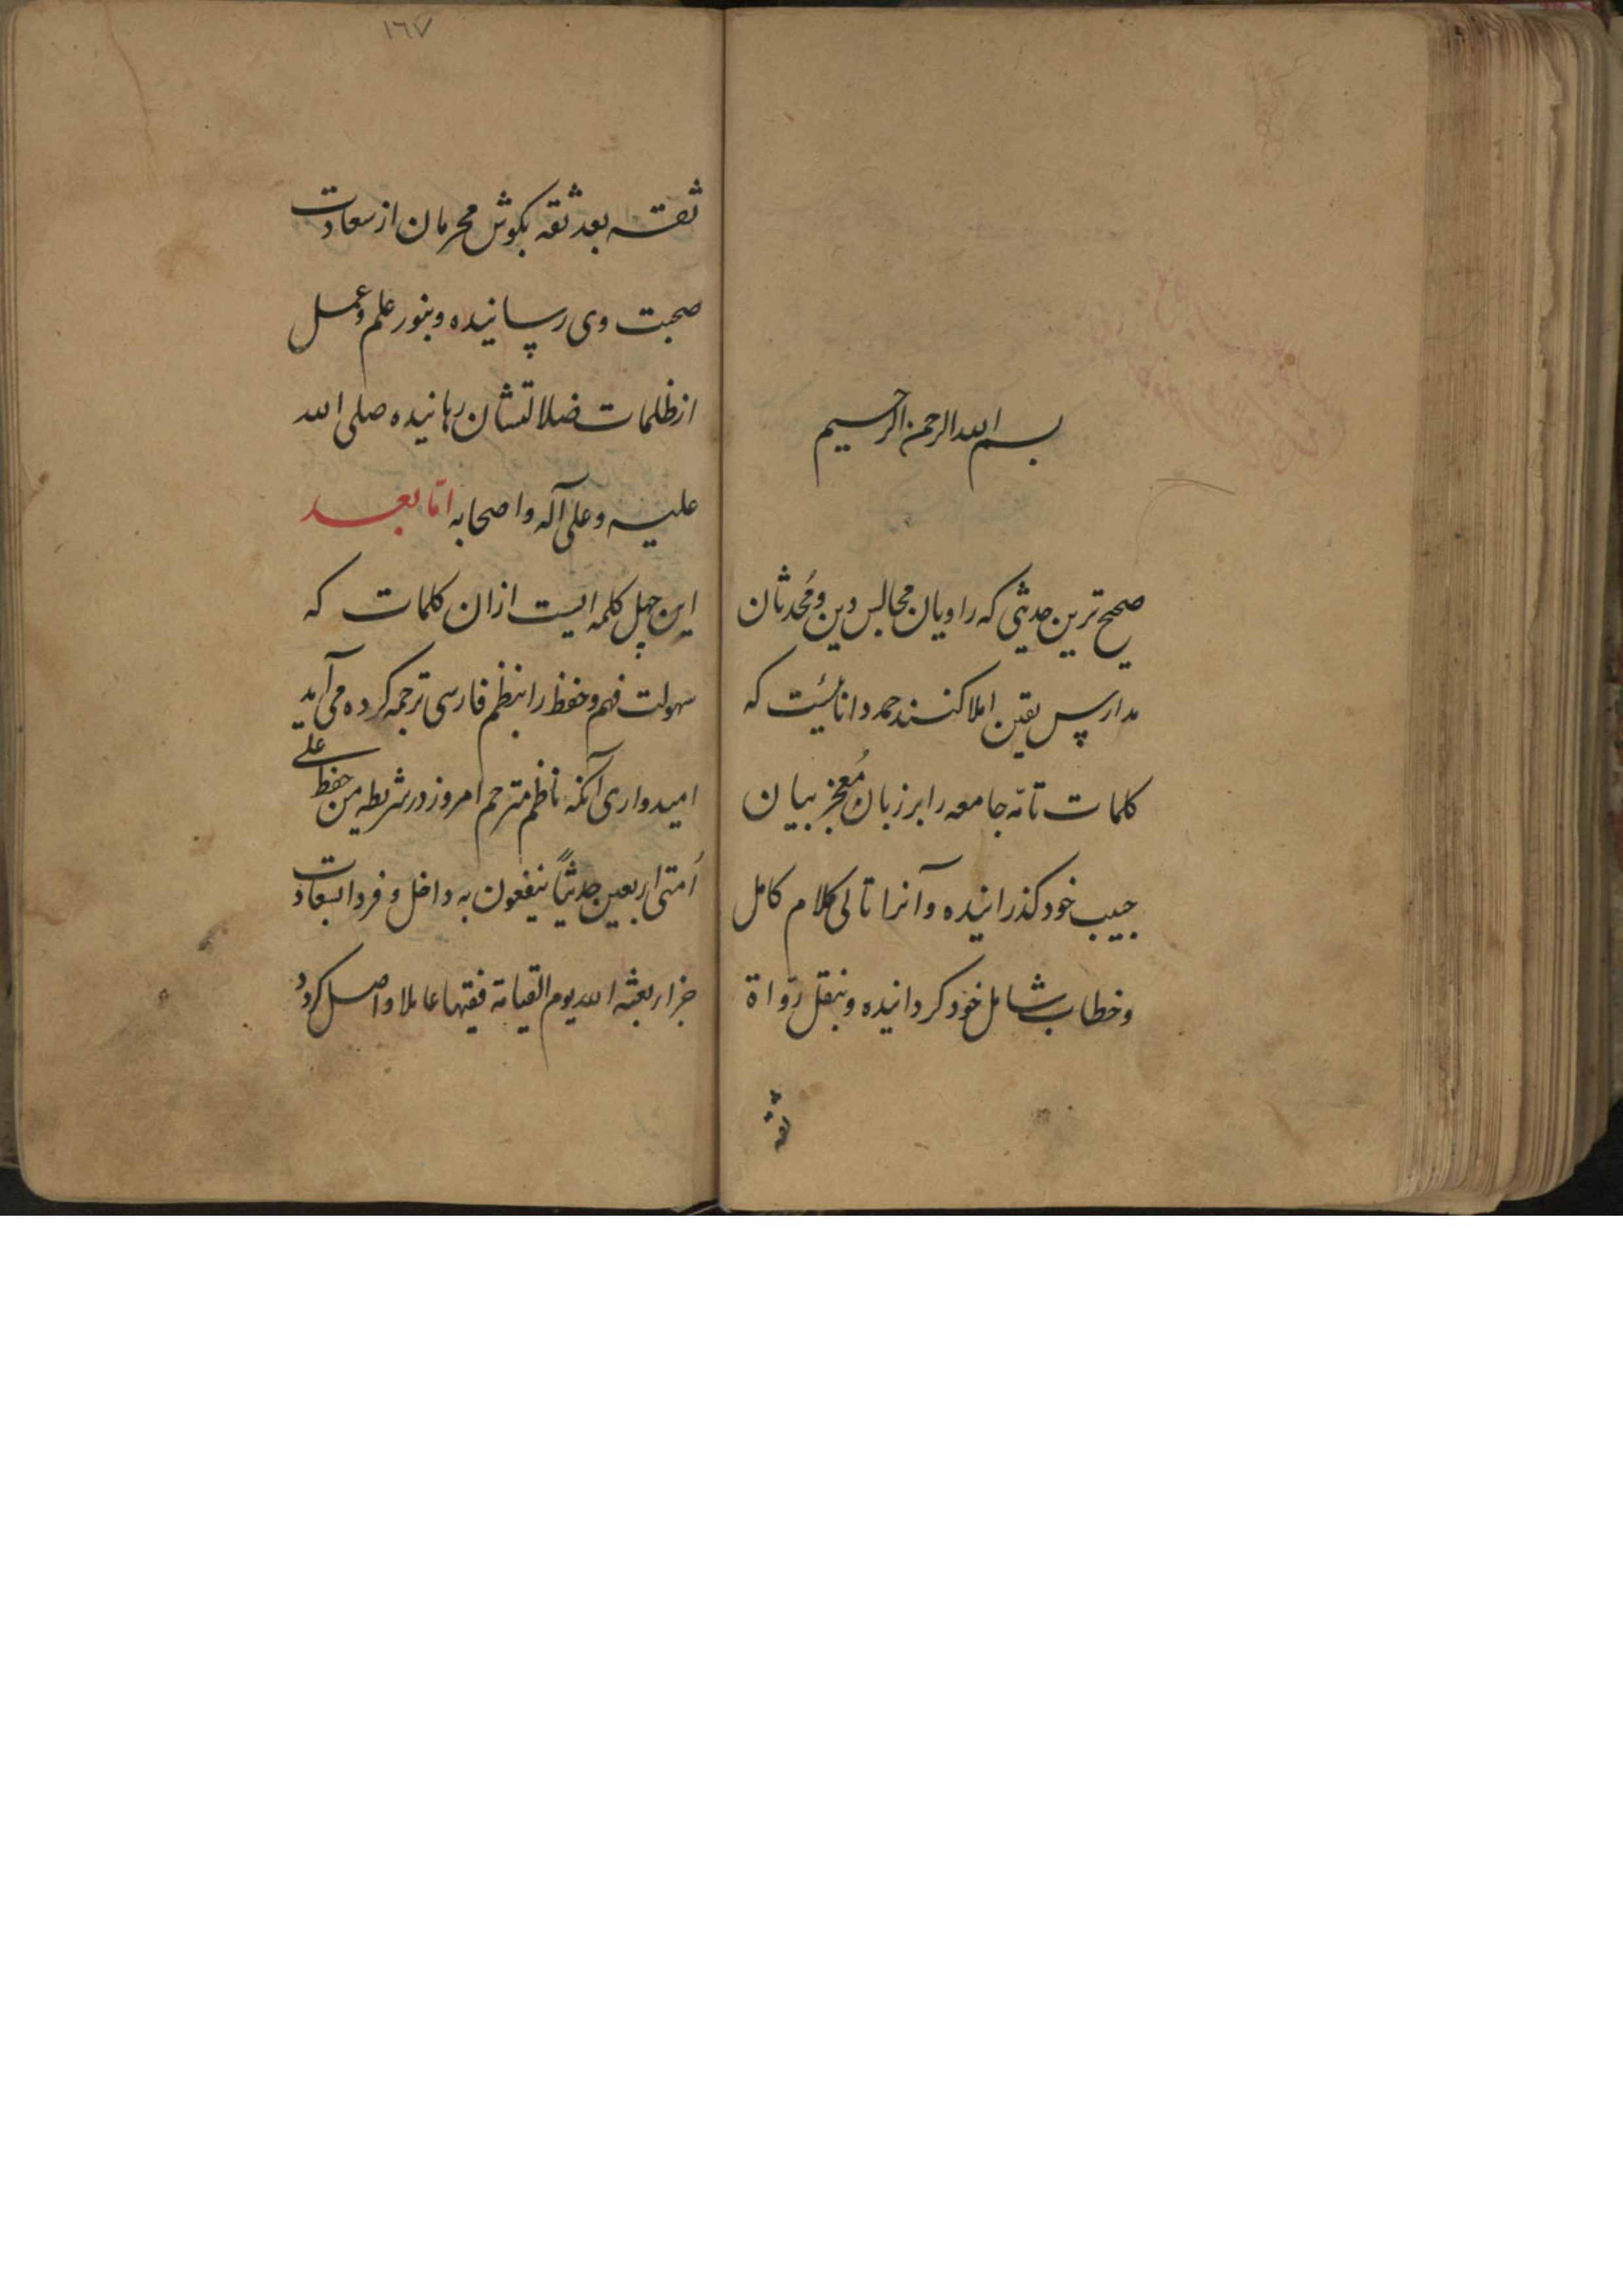 بسم الله الرحمن الرحیم
صحیح ترین حدیثی که راویان مجالس دین و مُحدثان
مدارس یقین املا کنند حمد دانائیست که
کلمات تامّه جامعه را بر زبان مُعجز بیان
حبیب خود کذرانیده و آنرا تالی کلام کامل
و خطاب شامل خود کردانیده و بنقل رُواة
ثقه
١٦٧
ثقه بعد ثقه بکوش محرمان از سعادت
صحبت وی رسانیده و بنور علم و عمل
از ظلمات ضلالتشان رهانیده صلی الله
علیه و علی آله و اصحابه امّا بعد
این چهل کلمه ایست ازان کلمات که
سهولت فهم و حفظ را بنظم فارسی ترجمه کرده می آید
امیدواری آنکه ناظم مترجم امروز در شریطه من حفظ علی
اُمتی اربعین حدیثاً ینفعون به داخل و فردا بسعادت
جزاء بعثه الله یوم القیامة فقیها عاملا واصل کردد